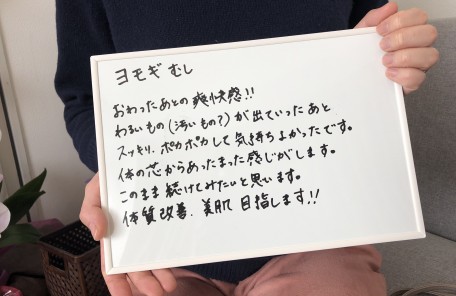 ヨモギむし
おわったあとの爽快感!!
わるいもの(汚いもの?)が出ていったあと
スッキリ、ポカポカして気持ちよかったです。
体の芯からあったまった感じがします。
このまま続けてみたいと思います。
体質改善、美肌目指します!!